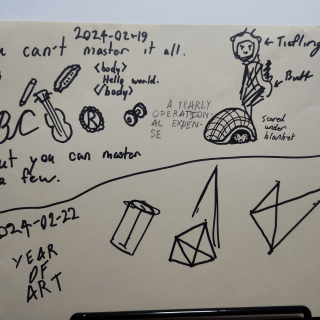 2024-02-19
u can't master it all.
Tiefling
<body>
Hello world.
</body>
Butt
BC
R
A YEARLY
OPERATION-
AL EXPEN-
SE
scared
under
blanket
but you can master
a few.
2024-02-22
YEAR
OF
ART